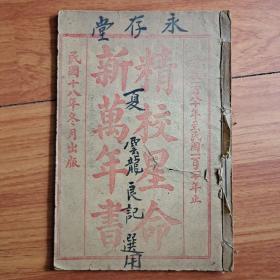 永存堂
年至民國
年止
精校星命
新萬年書
夏雲龍良記選用
民國十八年冬月出版